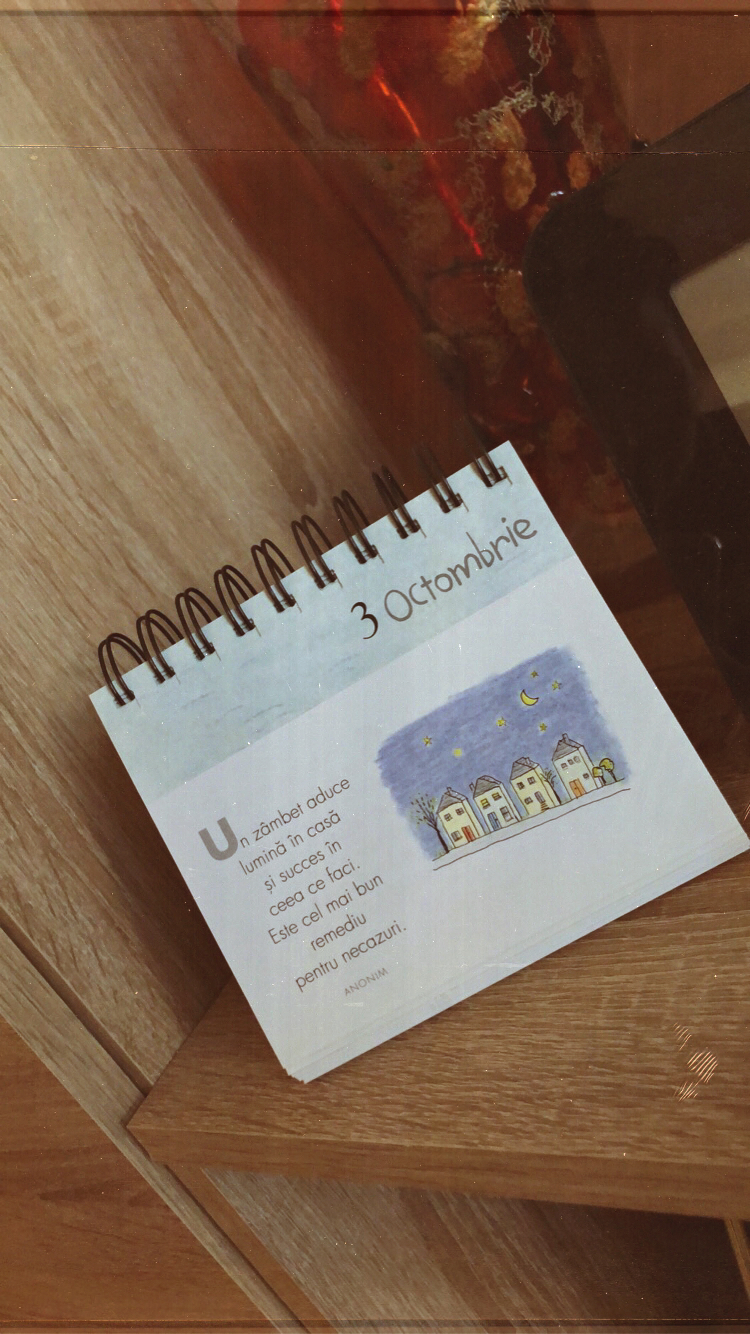 3 Octombrie
Un zâmbet aduce
lumină în casă
și succes în
ceea ce faci.
Este cel mai bun
remediu
pentru necazuri.
ANONIM